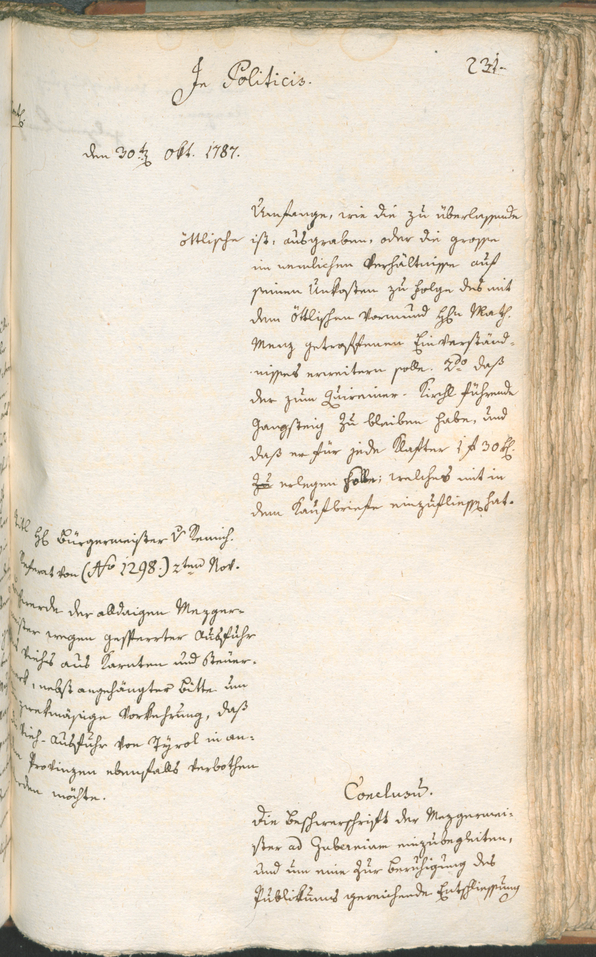 In Politicis.
231.
den 30t Okt. 1787.
öttlische
Umfange, wie die zu überlassende
ist, ausgraben, oder die grosse
im nemlichen Verhältnisse auf
seinen Unkosten zu Folge des mit
dem Öttlischen Vormund Hrn Math.
Menz getroffenen Einverständ-
nisses erweitern solle. 2do daß
der zum Quireiner-Kirchl führende
Gangsteig zu bleiben habe, und
daß er für jede Klafter 1 f 30 kr.
zu erlegen solle; welches mit in
dem Kaufbriefe einzufliessen hat.
Hr Bürgermeister v Remich.
Referat von (No 1298.) 2ten Nov.
der alldaigen Mezger-
wegen gesperrter Ausfuhr
Viehs aus Karnten und Steuer-
nebst angehängter Bitte um
zwekmäsige Vorkehrung, daß
Vieh-Ausfuhr von Tÿrol in an-
Provinzen ebenfalls verbothen
möchte.
Conclusum.
Die Beschwerschrift der Mezgermei-
ster ad Gubernium einzubegleiten,
und um eine zur Beruhigung des
Publikums gereichende Entschliessung